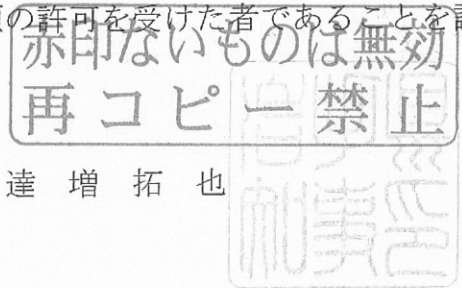 の許可を受けた者であることを
赤印ないものは無効
再コピー禁止
達増拓也